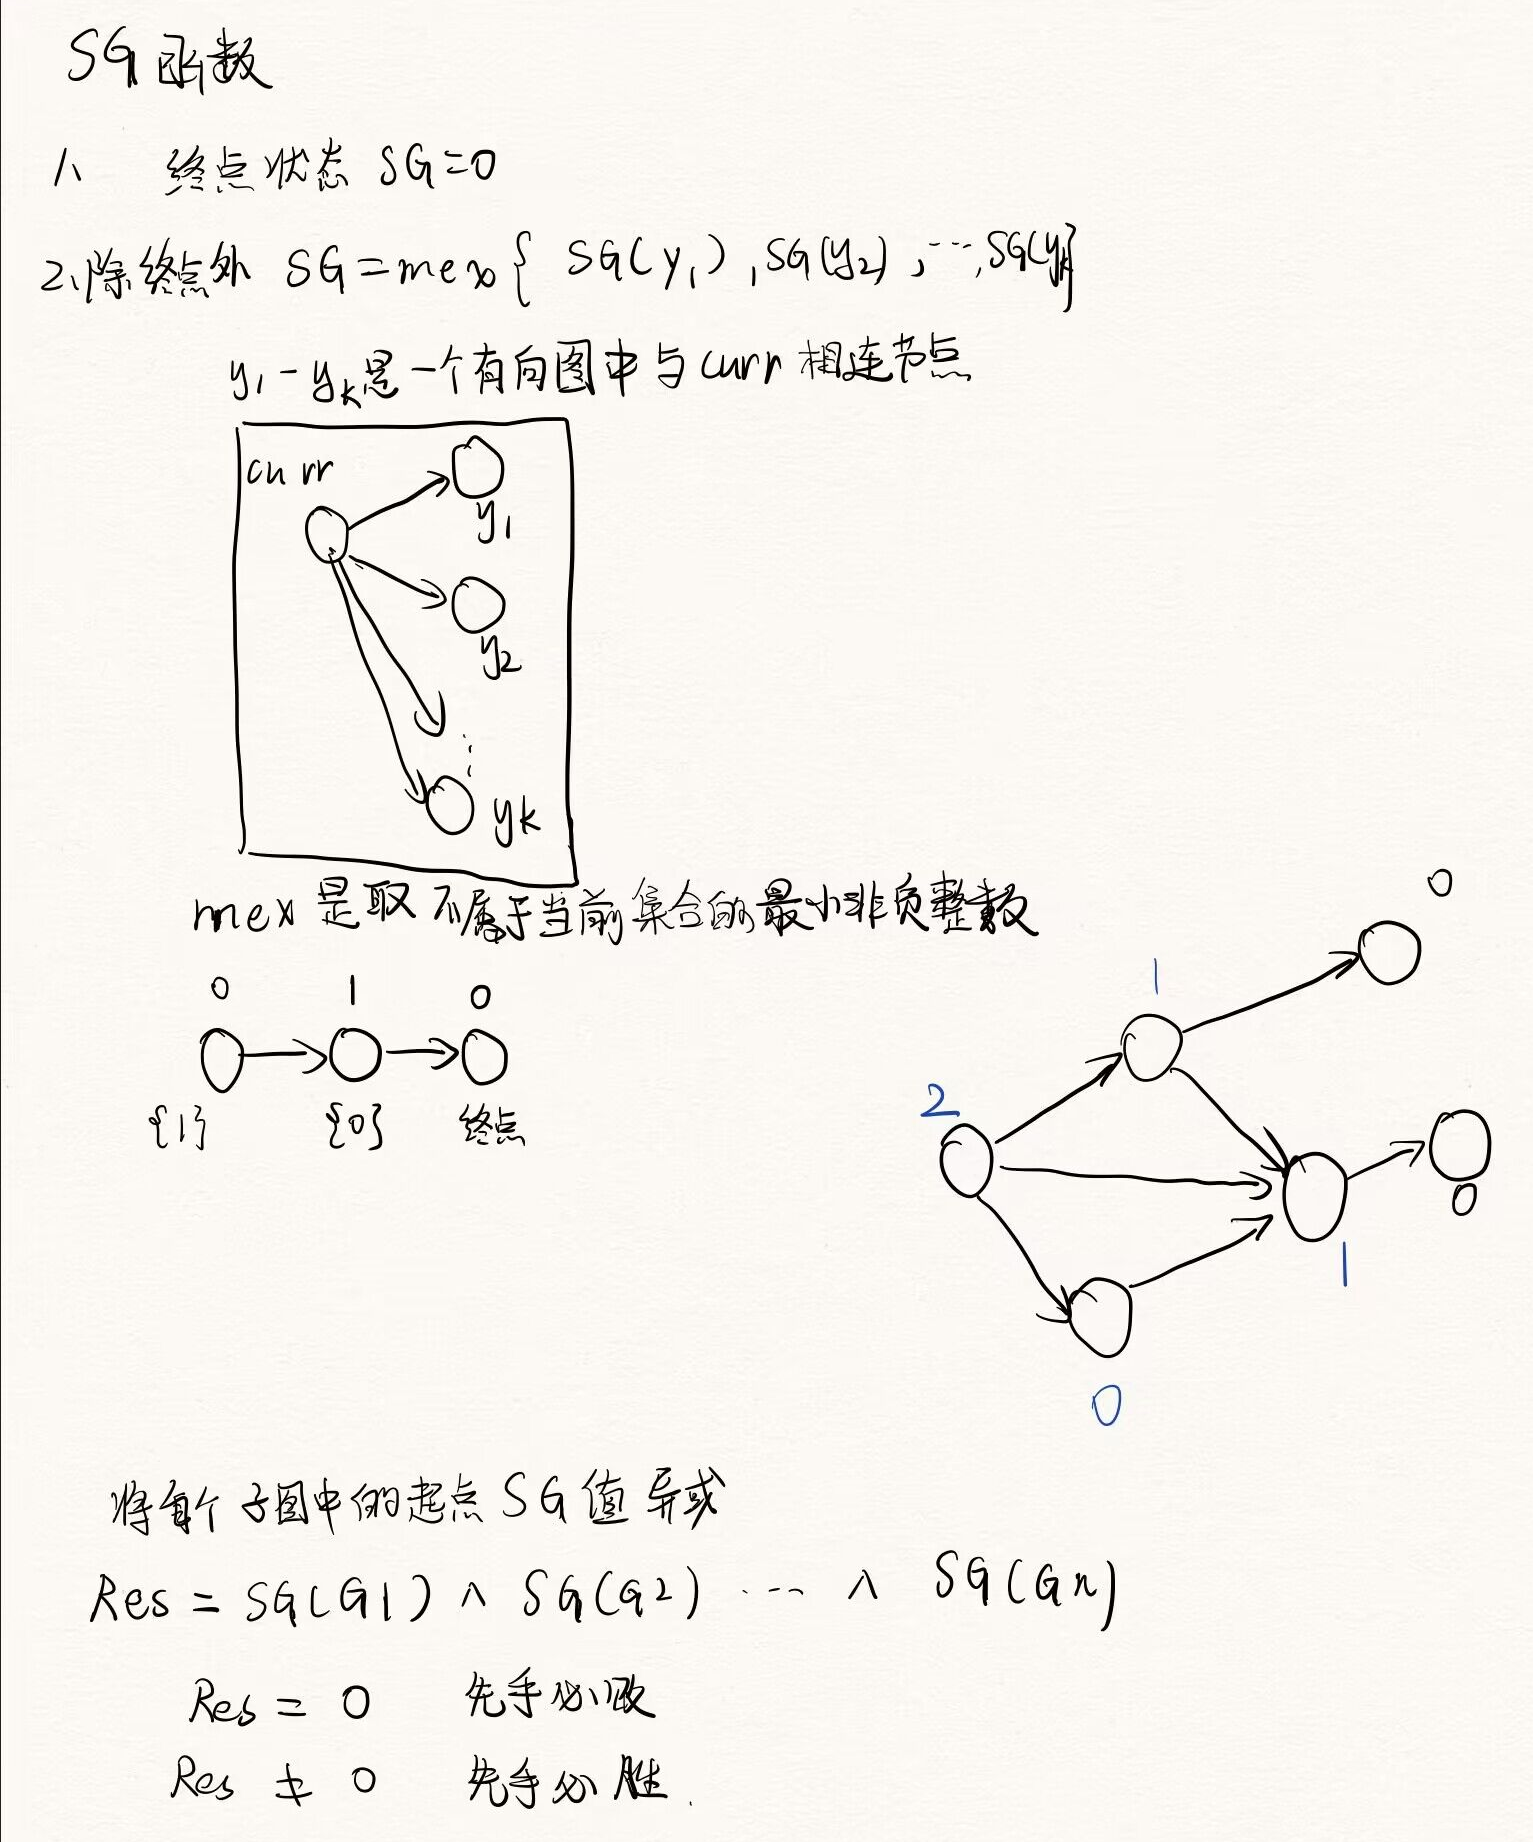 SG函数
1、 终点状态 SG=0
2、除终点外 SG=mex{ SG(y₁),SG(y₂),…,SG(yₖ}
y₁-yₖ是一个有向图中与curr相连节点
curr
y₁
y₂
⋮
yk
mex是取不属于当前集合的最小非负整数
0 1 0
{1} {0} 终点
0
1
2
0
1
0
将每个子图中的起点SG值异或
Res = SG(G1) ∧ SG(G2) … ∧ SG(Gn)
Res = 0 先手必败
Res ≠ 0 先手必胜.